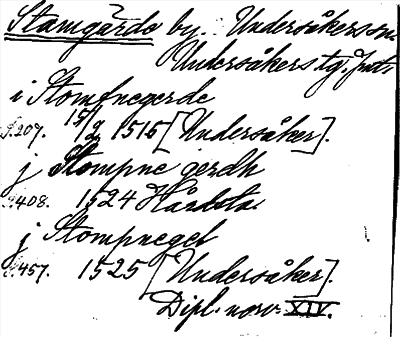 Stamgärde by. Undersåkers sn.
Undersåkers tg. Jmtl.
i Stomfnegerde
S.207. 15/2 1515 [Undersåker].
j Stompne gerdh
S.408. 1524 Hånbsta.
j Stompnegel
S.457. 1525 [Undersåker].
Dipl. norv. XIV.